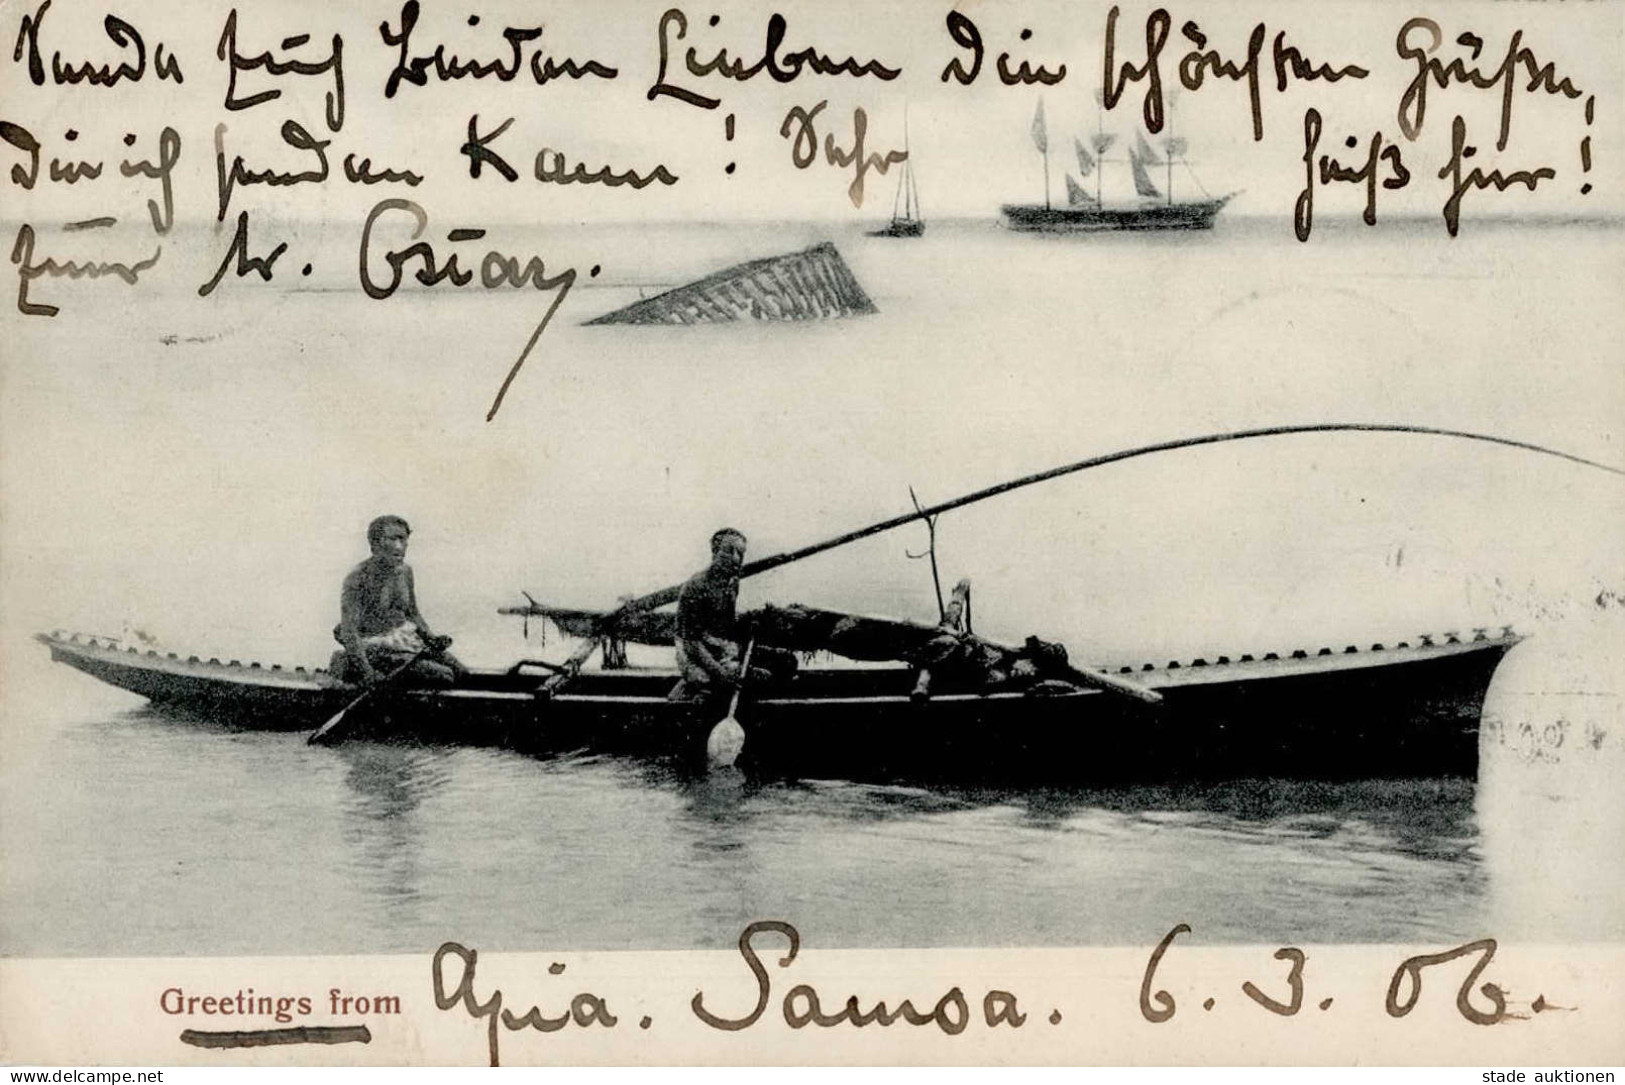 Sende Euch beiden Lieben die schönsten Grüße,
die ich senden kann! Sehr heiß hier!
Euer tr. Oskar.
Greetings from Apia. Samoa. 6.3.06.
www.delcampe.net
stade auktionen